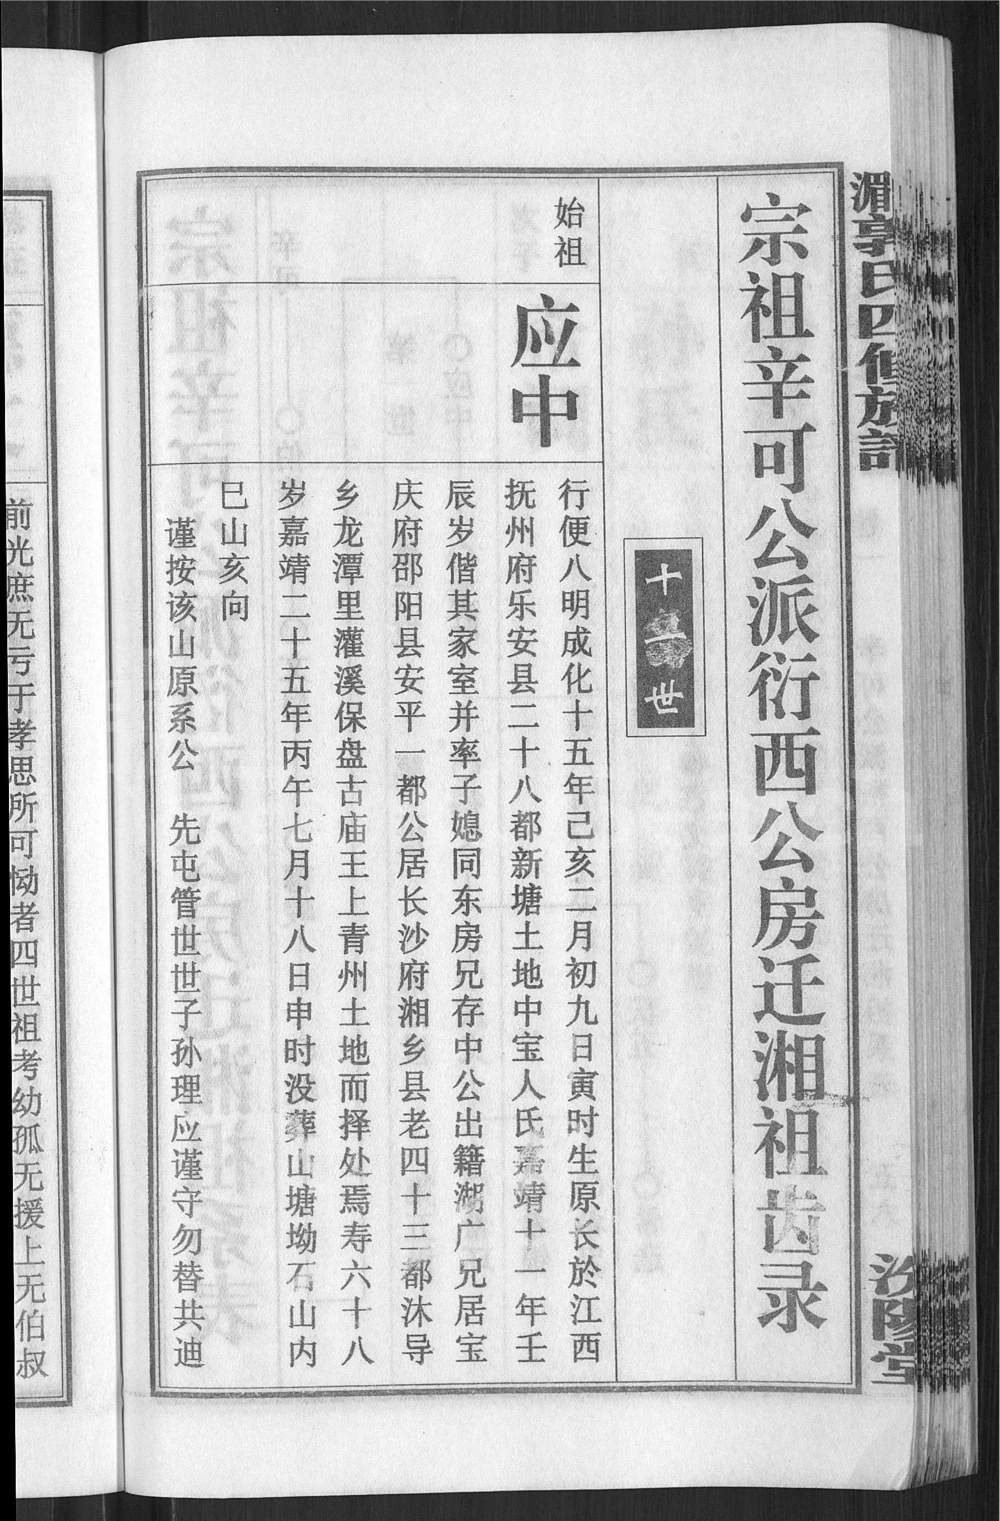 湄郭氏四修族谱
汾陽堂
宗祖辛可公派衍西公房迁湘祖齿录
十一世
始祖
应中
行便八明成化十五年己亥二月初九日寅时生原长於江西
抚州府乐安县二十八都新塘土地中宝人氏嘉靖十一年壬
辰岁偕其家室并率子媳同东房兄存中公出籍湖广兄居宝
庆府邵阳县安平一都公居长沙府湘乡县老四十三都沐导
乡龙潭里灌溪保盘古庙王上青州土地而择处焉寿六十八
岁嘉靖二十五年丙午七月十八日申时没葬山塘坳石山内
巳山亥向
谨按该山原系公 先屯管世世子孙理应谨守勿替共迪
前光庶无亏于孝思所可恸者四世祖考幼孤无援上无伯叔